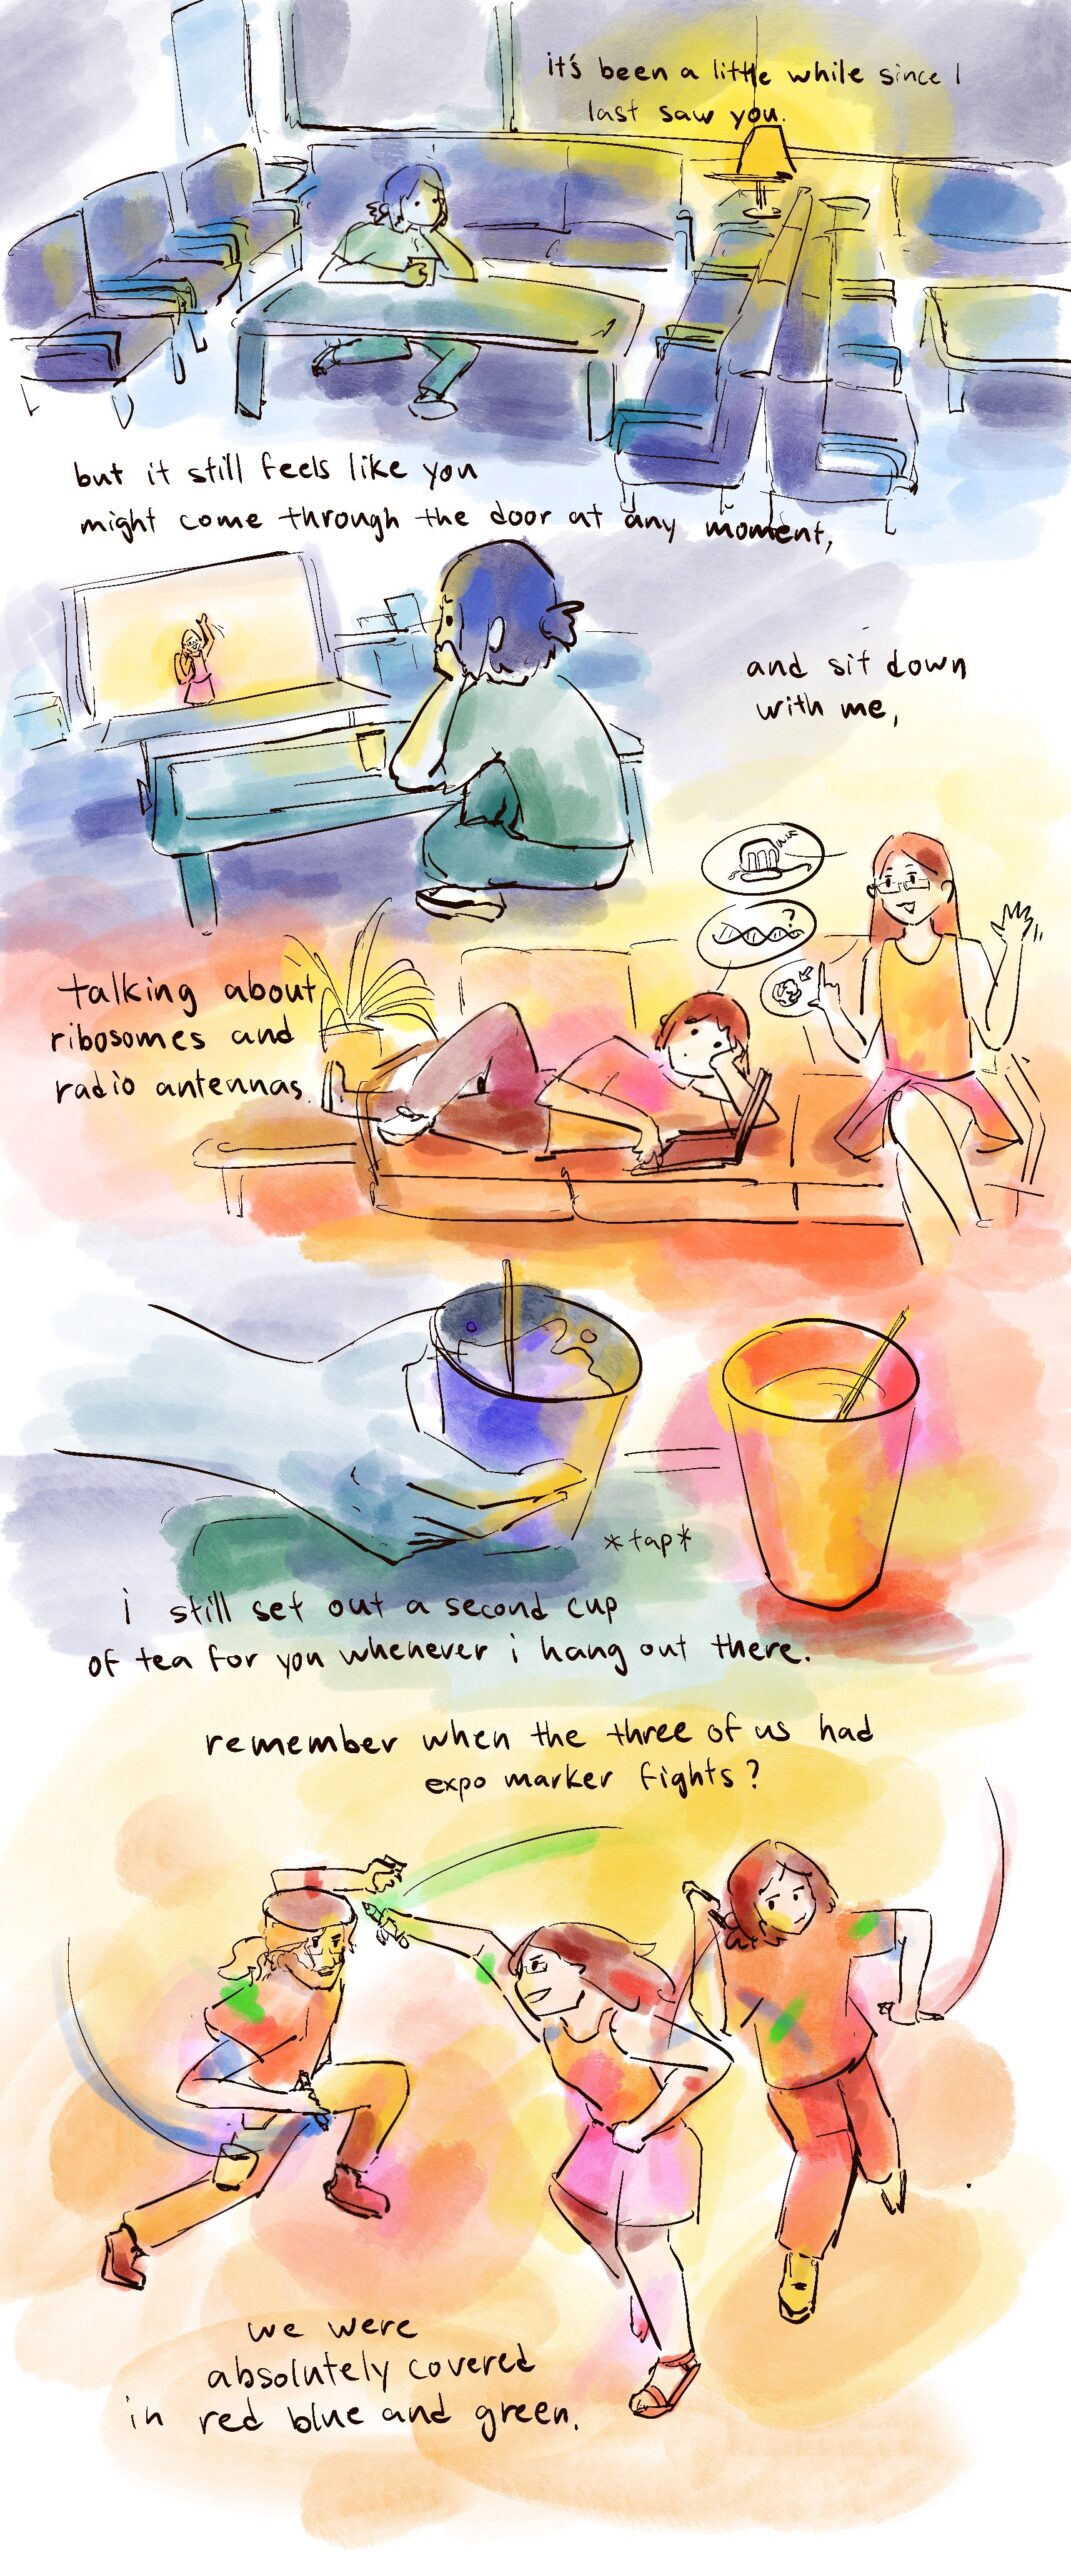 it's been a little while since I
last saw you.
but it still feels like you
might come through the door at any moment,
and sit down
with me,
?
talking about
ribosomes and
radio antennas.
*tap*
i still set out a second cup
of tea for you whenever i hang out there.
remember when the three of us had
expo marker fights?
we were
absolutely covered
in red blue and green.